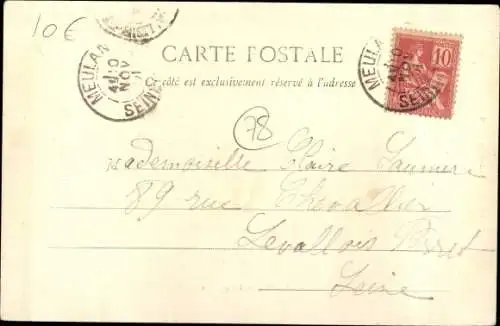 10€
CARTE POSTALE
MEULAN
NOV
SEINE
côté est exclusivement réservé à l'adresse
10
MEULAN
NOV
SEINE
78
Mademoiselle Claire
89 rue Chevallier
Levallois Perret
Seine